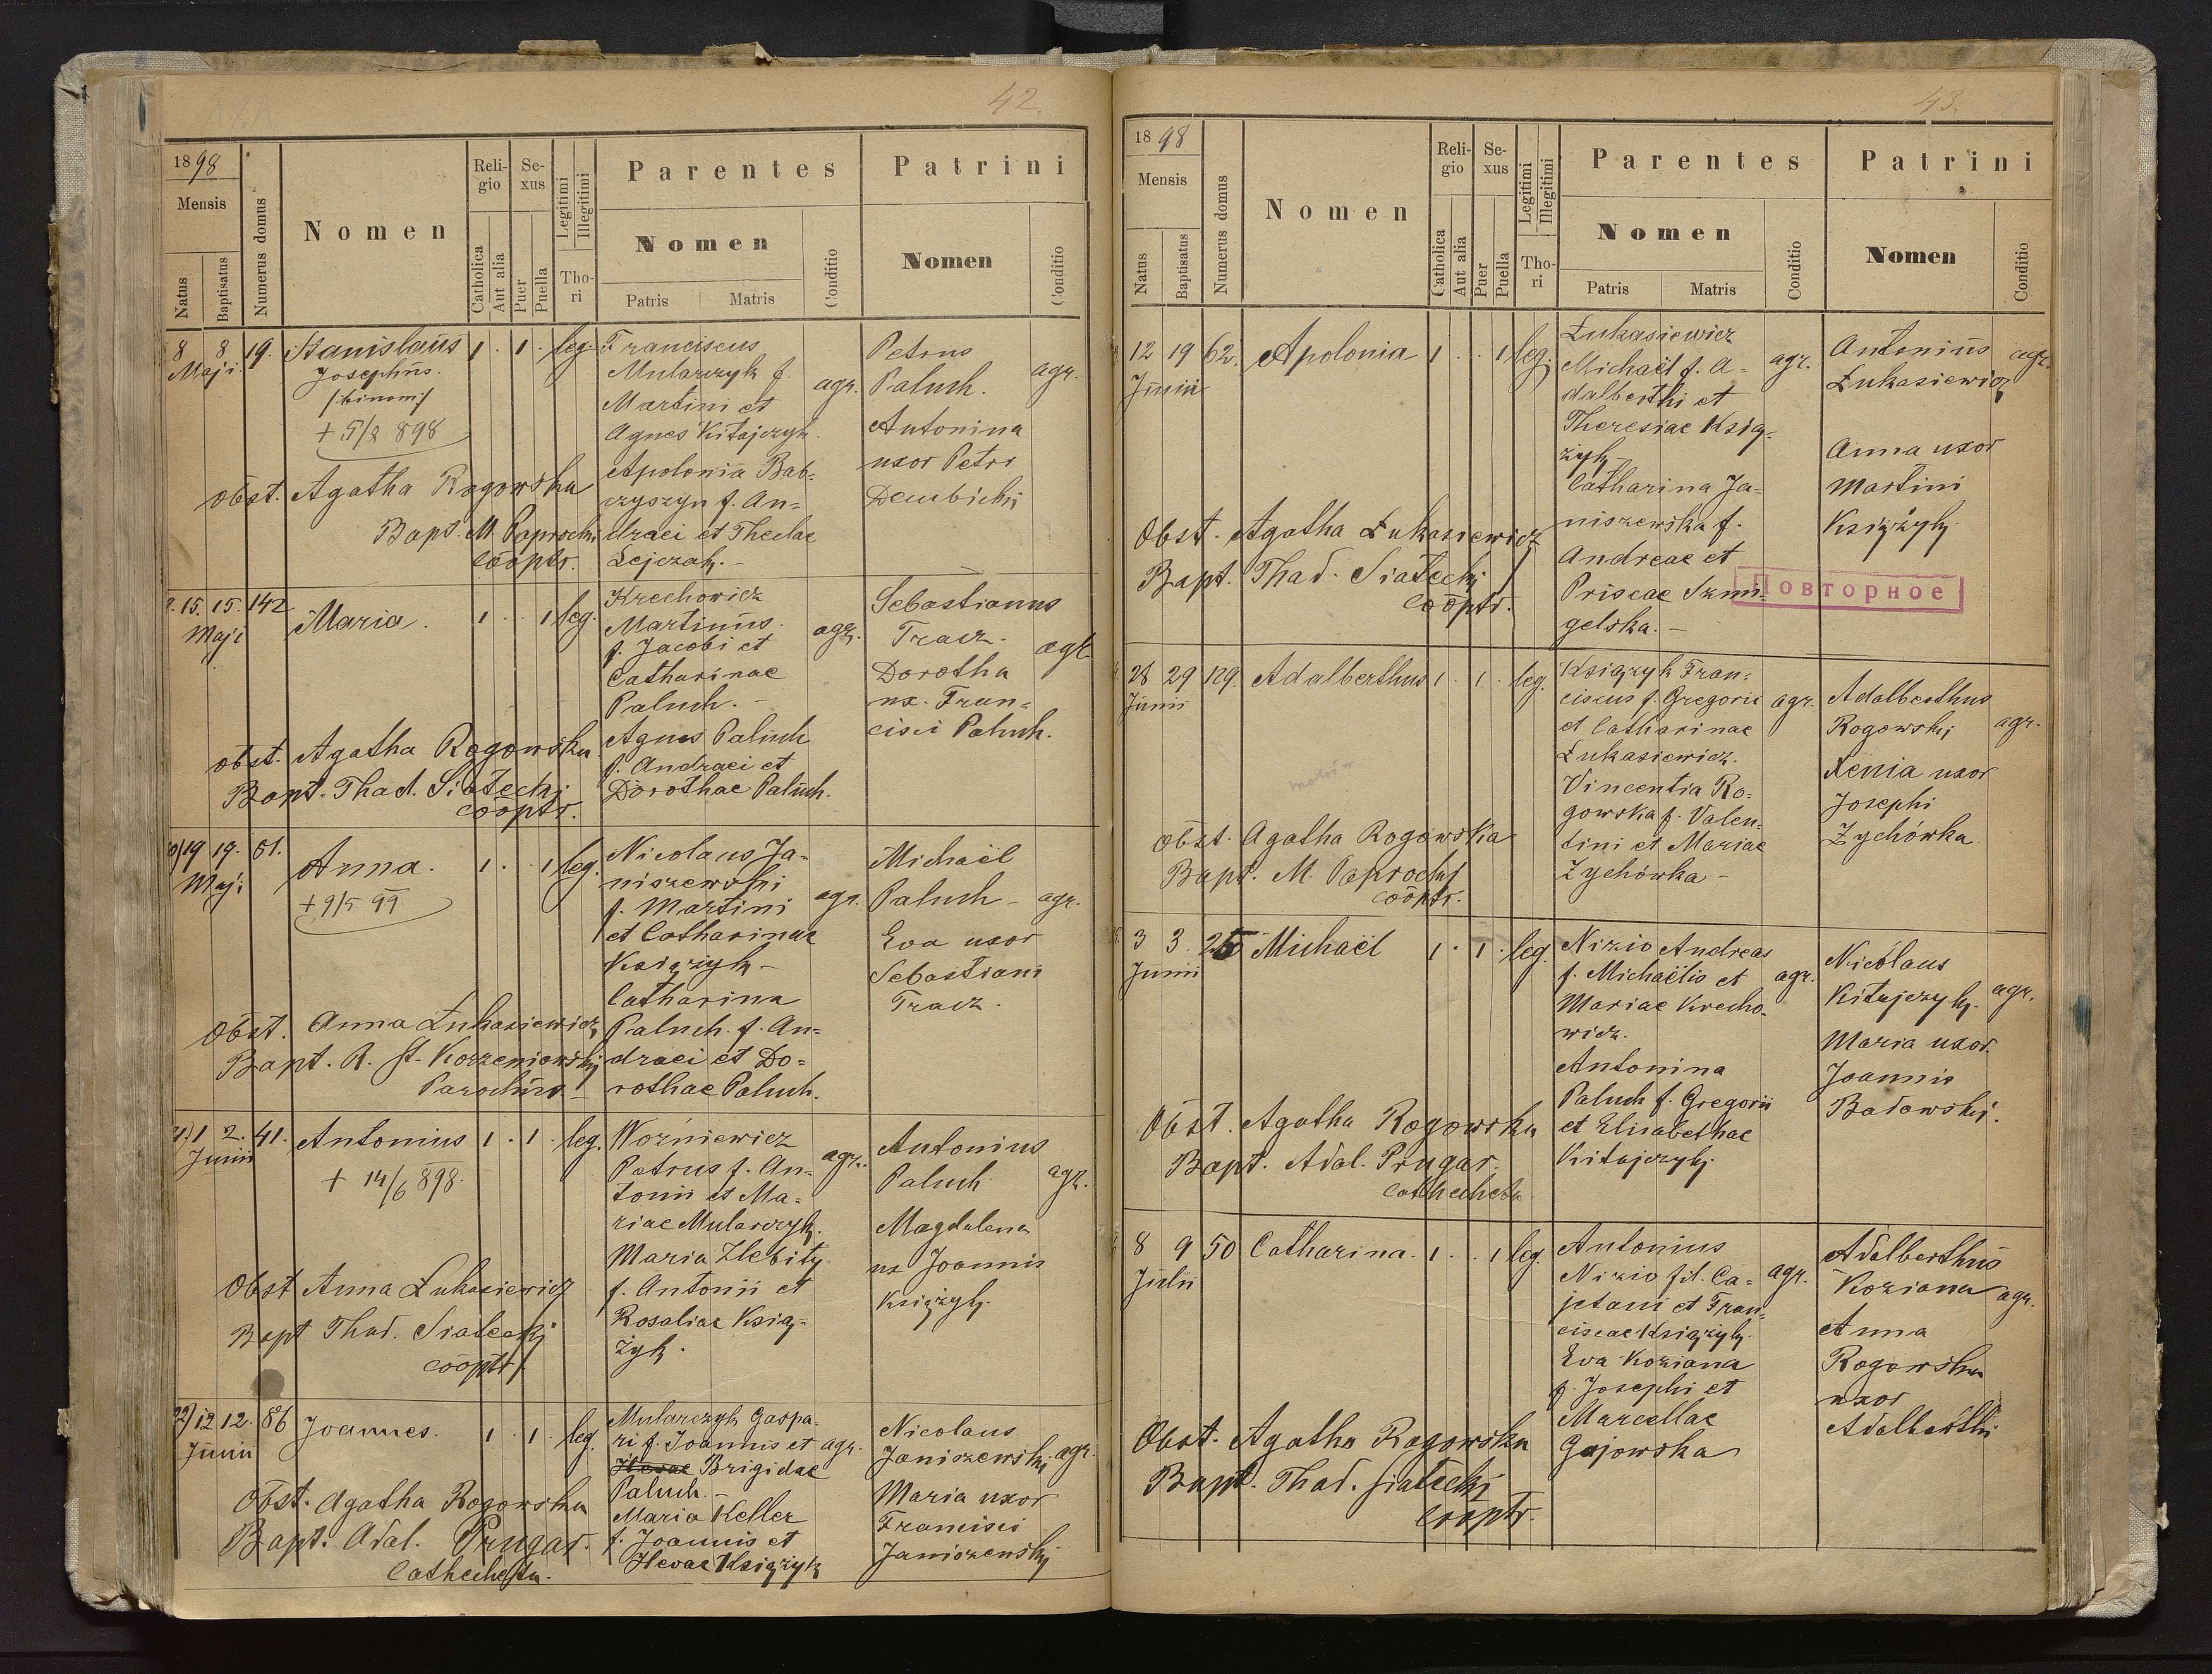 42.
1898
Mensis
Natus
Baptisatus
Numerus domus
Nomen
Reli-
gio
Catholica
Aut alia
Se-
xus
Puer
Puella
Legitimi
Illegitimi
Tho-
ri
Parentes
Nomen
Patris
Matris
Conditio
Patrini
Nomen
Conditio
8 8 19. Stanislaus 1 . 1 . leg.
Maji
Josephus.
/:binom:/
+ 5/8 898
Obst. Agatha Rogowska
Bapt. M. Paprocki
cooptr.
Franciscus
Mularczyk f.
Martini et
Agnes Kitajczyk.
Apolonia Bab-
czyszyn f. An-
draei et Theclae
Lejczak. -
agr.
Petrus
Paluch.
Antonina
uxor Petri
Dembicki
agr.
15. 15. 142 Maria. 1 . . 1 leg.
Maji
Obst. Agatha Rogowska
Bapt. Thad. Siatecki
cooptr.
Krechowicz
Martinus.
f. Jacobi et
Catharinae
Paluch. -
Agnes Paluch
f. Andraei et
Dorothae Paluch.
agr.
Sebastianus
Tracz.
Dorotha
ux. Fran-
cisci Paluch.
agr.
19 19. 61. Anna. 1 . . 1 leg.
Maji
+ 9/5 99
Obst. Anna Łukasiewicz
Bapt. R. St. Korzeniowski
Parochus. -
Nicolaus Ja-
niszewski
f. Martini
et Catharinae
Książyk -
Catharina
Paluch. f. An-
draei et Do-
rothae Paluch.
agr.
Michaël
Paluch -
Eva uxor
Sebastiani
Tracz.
agr.
1 2. 41. Antonius 1 . 1 . leg.
Junii
+ 14/6 898.
Obst Anna Łukasiewicz
Bapt Thad. Siatecki
cooptr.
Woźniewicz
Petrus f. An-
tonii et Ma-
riae Mularczyk.
Maria Zlebity
f. Antonii et
Rosaliae Ksią-
żyk.
agr.
Antonius
Paluch
Magdalena
ux Joannis
Książyk.
agr.
22) 12 12. 86 Joannes. 1 . 1 . leg.
Junii
Obst. Agatha Rogowska
Bapt. Adal. Prugar.
Cathecheta.
Mularczyk Gaspa-
ri f. Joannis et
Hevae Brigidae
Paluch. -
Maria Keller
f. Joannis et
Hevae Książyk
agr.
Nicolaus
Janiszewski
Maria uxor
Francisci
Janiszewski
agr.
43.
1898
Mensis
Natus
Baptisatus
Numerus domus
Nomen
Reli-
gio
Catholica
Aut alia
Se-
xus
Puer
Puella
Legitimi
Illegitimi
Tho-
ri
Parentes
Nomen
Patris
Matris
Conditio
Patrini
Nomen
Conditio
12 19 62. Apolonia 1 . . 1 leg.
Junii
Obst. Agatha Łukasiewicz
Bapt. Thad. Siatecki
cooptr.
Łukasiewicz
Michaël f. A-
dalberthi et
Theresiae Ksią-
żyk -
Catharina Ja-
niszewska f.
Andreae et
Priscae Szmi-
gelska. -
agr.
Antonius
Łukasiewicz
Anna uxor
Martini
Książyk.
agr.
Повторное
28 29 129. Adalberthus 1 . 1 . leg.
Junii
Obst. Agatha Rogowska
Bapt. M. Paprocki
cooptr.
Książyk Fran-
ciscus f. Gregorii
et Catharinae
Łukasiewicz.
Vincentia Ro-
gowska f. Valen-
tini et Mariae
Zychówka -
agr.
Adalberthus
Rogowski
Xenia uxor
Josephi
Zychówka
agr.
3 3. 25 Michaël 1 . 1 . leg.
Junii
Obst. Agatha Rogowska
Bapt. Adal. Prugar.
Cathecheta
Nizio Andreas
f. Michaëlis et
Mariae Krecho-
wicz.
Antonina
Paluch f. Gregorii
et Elisabethae
Kitajczyk.
agr.
Nicolaus
Kitajczyk.
Maria uxor.
Joannis
Badowski.
agr.
8 9 50 Catharina. 1 . . 1 leg.
Julii
Obst. Agatha Rogowska
Bapt. Thad. Siatecki
cooptr.
Antonius
Nizio fil. Ca-
jetani et Fran-
ciscae Książyk.
Eva Koziana
f. Josephi et
Marcellae
Gajowska
agr.
Adalberthus
Koziana
Anna
Rogowska
uxor
Adalberthi
agr.